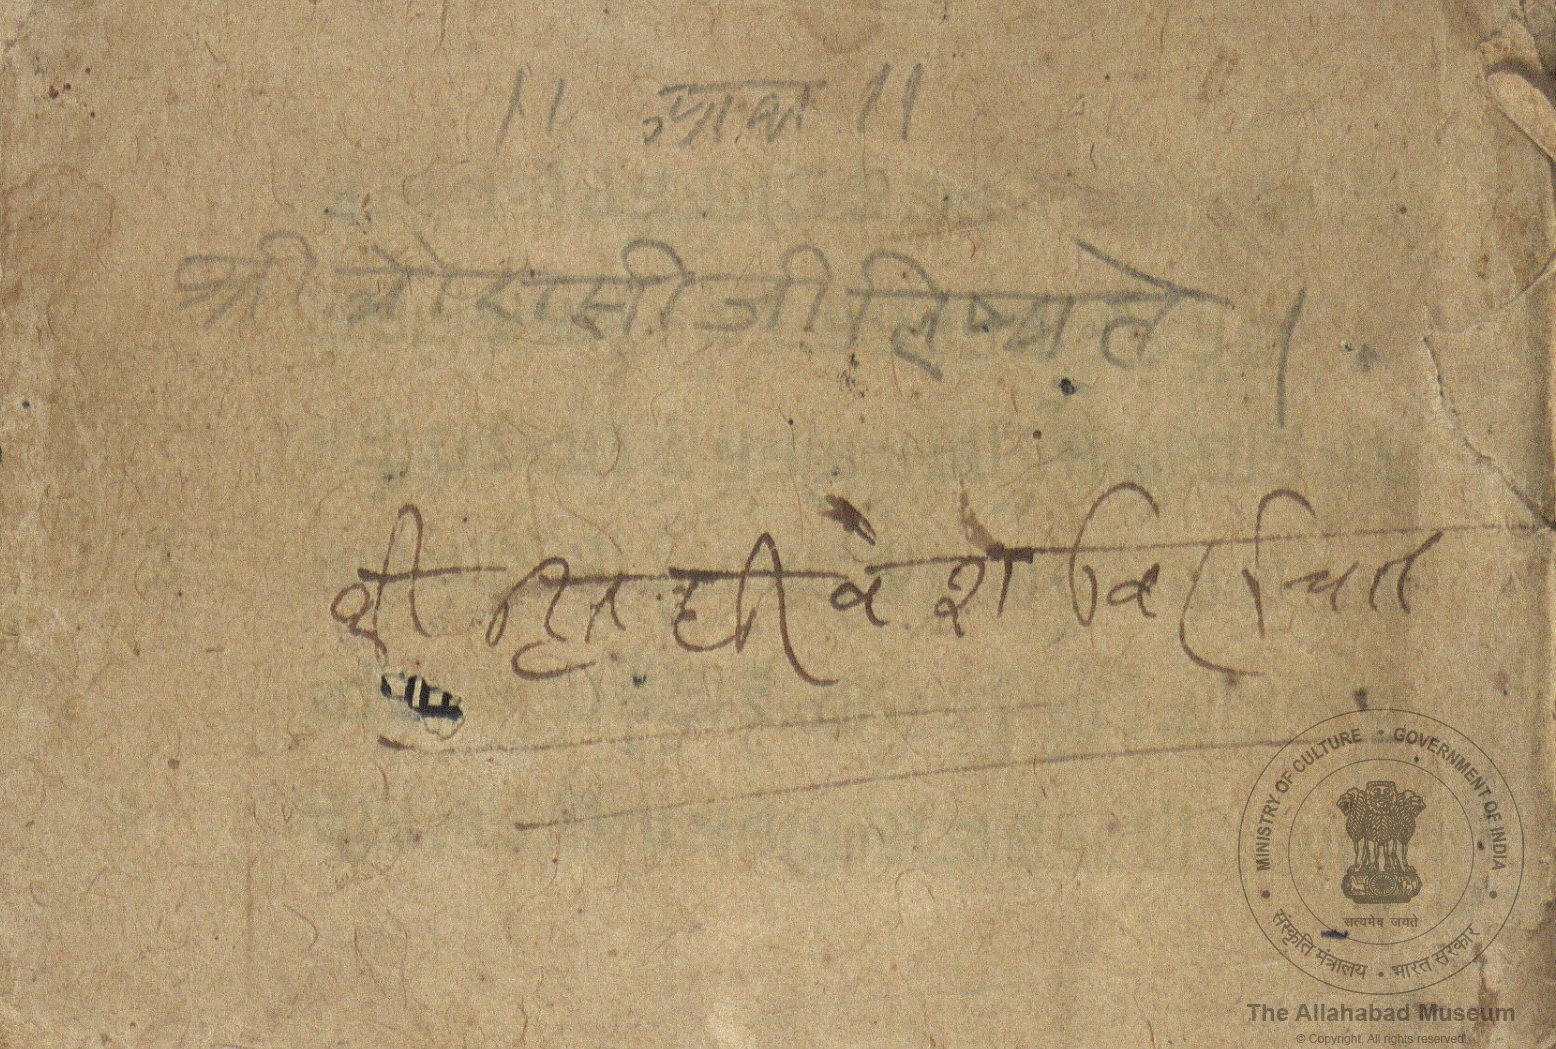 श्री चोरासी जी लिष्यते ।
श्री हित हरीवंश विरचित
MINISTRY OF CULTURE • GOVERNMENT OF INDIA
सत्यमेव जयते
संस्कृति मंत्रालय • भारत सरकार
The Allahabad Museum
© Copyright. All rights reserved.